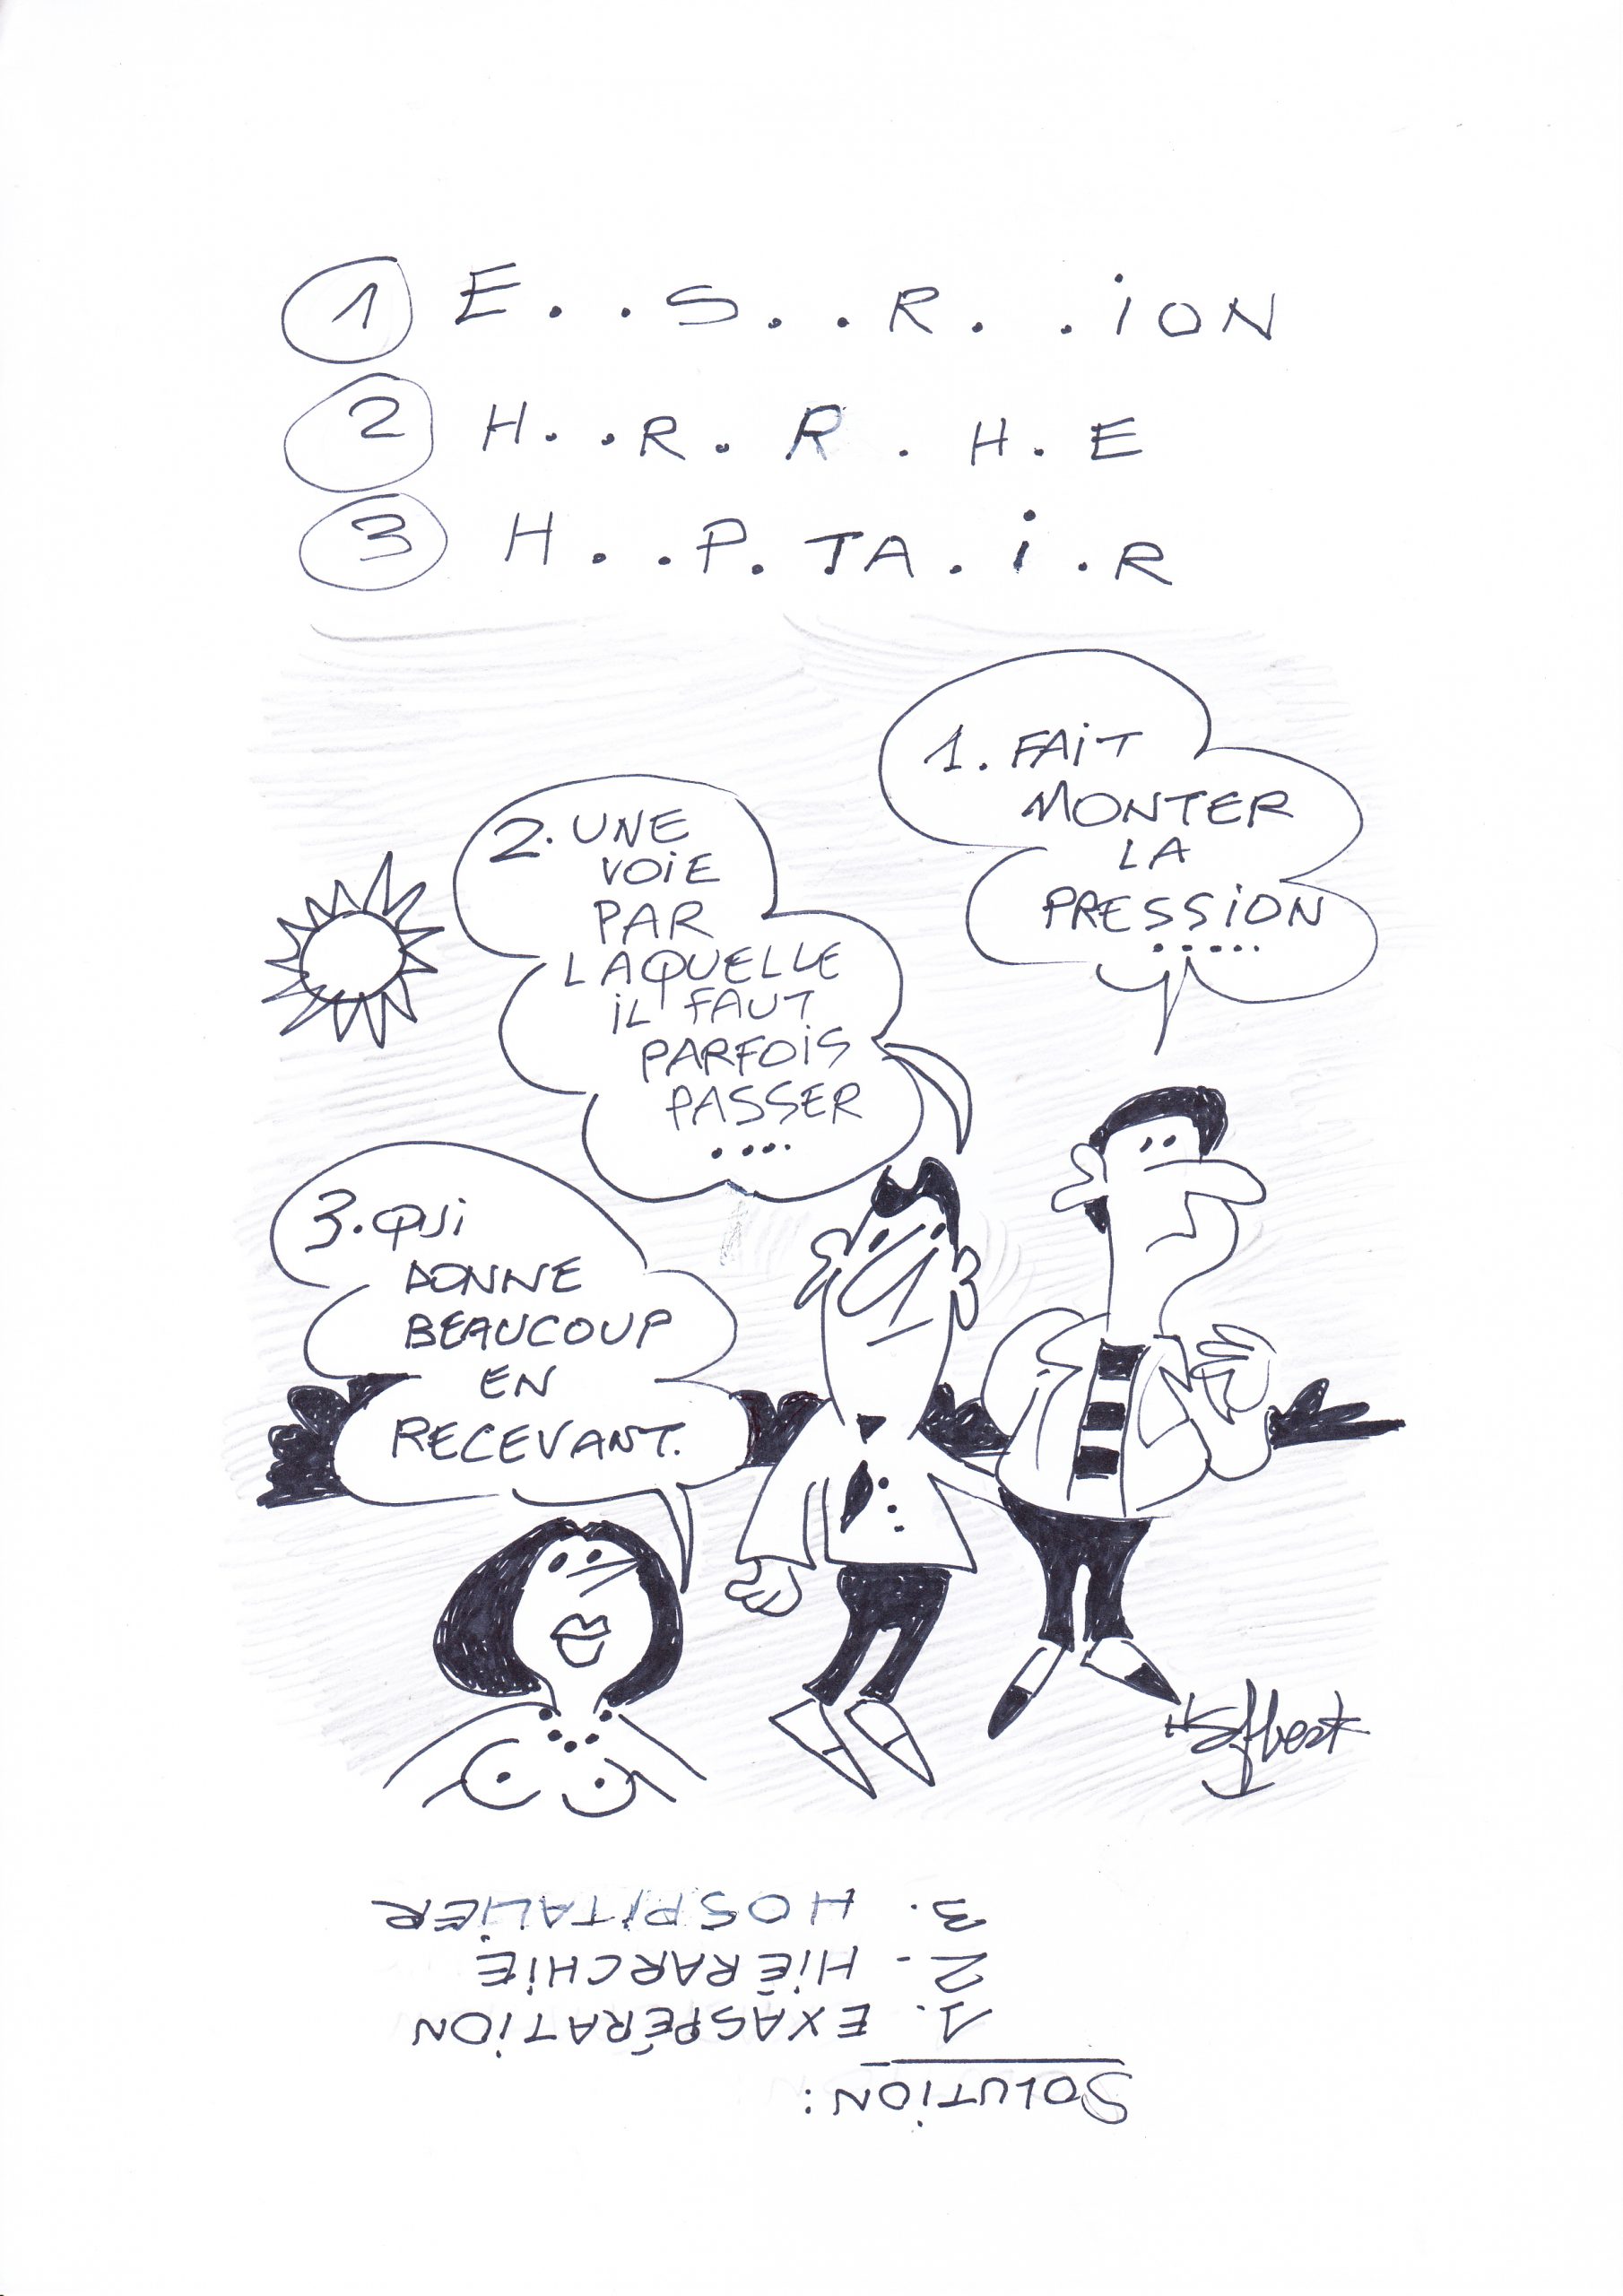 1 E . . S . . R . . iON
2 H . . R . R . H . E
3 H . . P . TA . i . R
1. FAiT
MONTER
LA
PRESSiON
.....
2. UNE
VOiE
PAR
LAQUELLE
iL FAUT
PARFOiS
PASSER
....
3. QUi
DONNE
BEAUCOUP
EN
RECEVANT.
SOLUTiON :
1. EXASPÉRATiON
2. HiÉRARCHiE
3. HOSPiTALiER